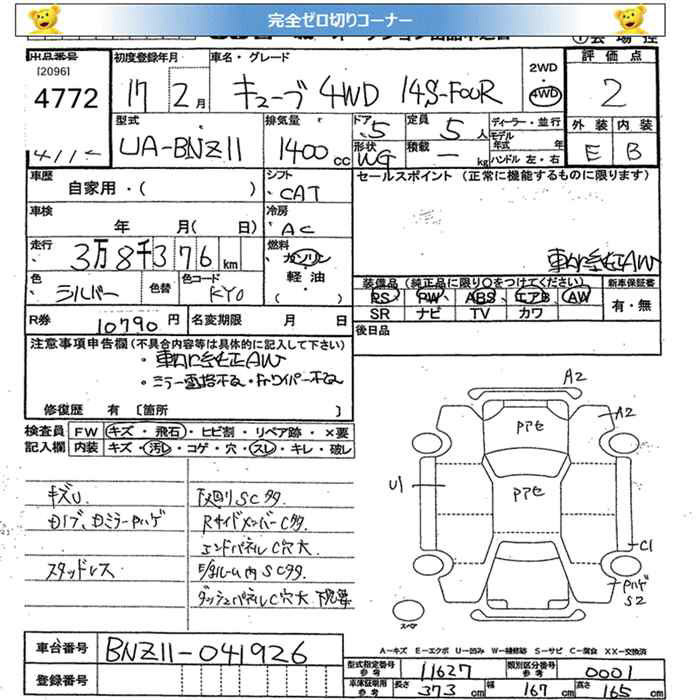 完全ゼロ切りコーナー
出品番号
[2096]
4772
初度登録年月
17 2月
車名・グレード
キューブ 4WD 14S-FOUR
2WD
4WD
評価点
2
外装 内装
E B
型式
UA-BNZ11
排気量
1400cc
ドア
5
形状
WG
定員
5人
積載
- kg
ディーラー・並行
モデル年式 年
ハンドル 左・右
車歴
自家用・( )
シフト
CAT
冷房
AC
車検
年 月( 日)
走行
3万8千376km
燃料
ガソリン
軽油
( )
色
シルバー
色替
色コード
KY0
R券
10790円
名変期限 月 日
セールスポイント(正常に機能するものに限ります)
装備品(純正品に限り○をつけてください)
PS PW ABS エアB AW
SR ナビ TV カワ
新車保証書
有・無
後日品
注意事項申告欄(不具合内容等は具体的に記入して下さい)
修復歴 有 [箇所 ]
検査員記入欄
FW キズ・飛石・ヒビ割・リペア跡・×要
内装 キズ・汚レ・コゲ・穴・スレ・キレ・破レ
キズU
スタッドレス
下廻りSC多
RサイドメンバーC多
エンドパネルC穴大
ダッシュパネルC穴大
A2
A2
Pアセ
Pアセ
U1
C1
Pハゲ
S2
スペア
A-キズ E-エクボ U-凹み W-補修跡 S-サビ C-腐食 XX-交換済
車台番号
BNZ11-041926
登録番号
型式指定番号 参考 11627
類別区分番号 参考 0001
車体証取用 参考 長さ 373cm 幅 167cm 高さ 165cm